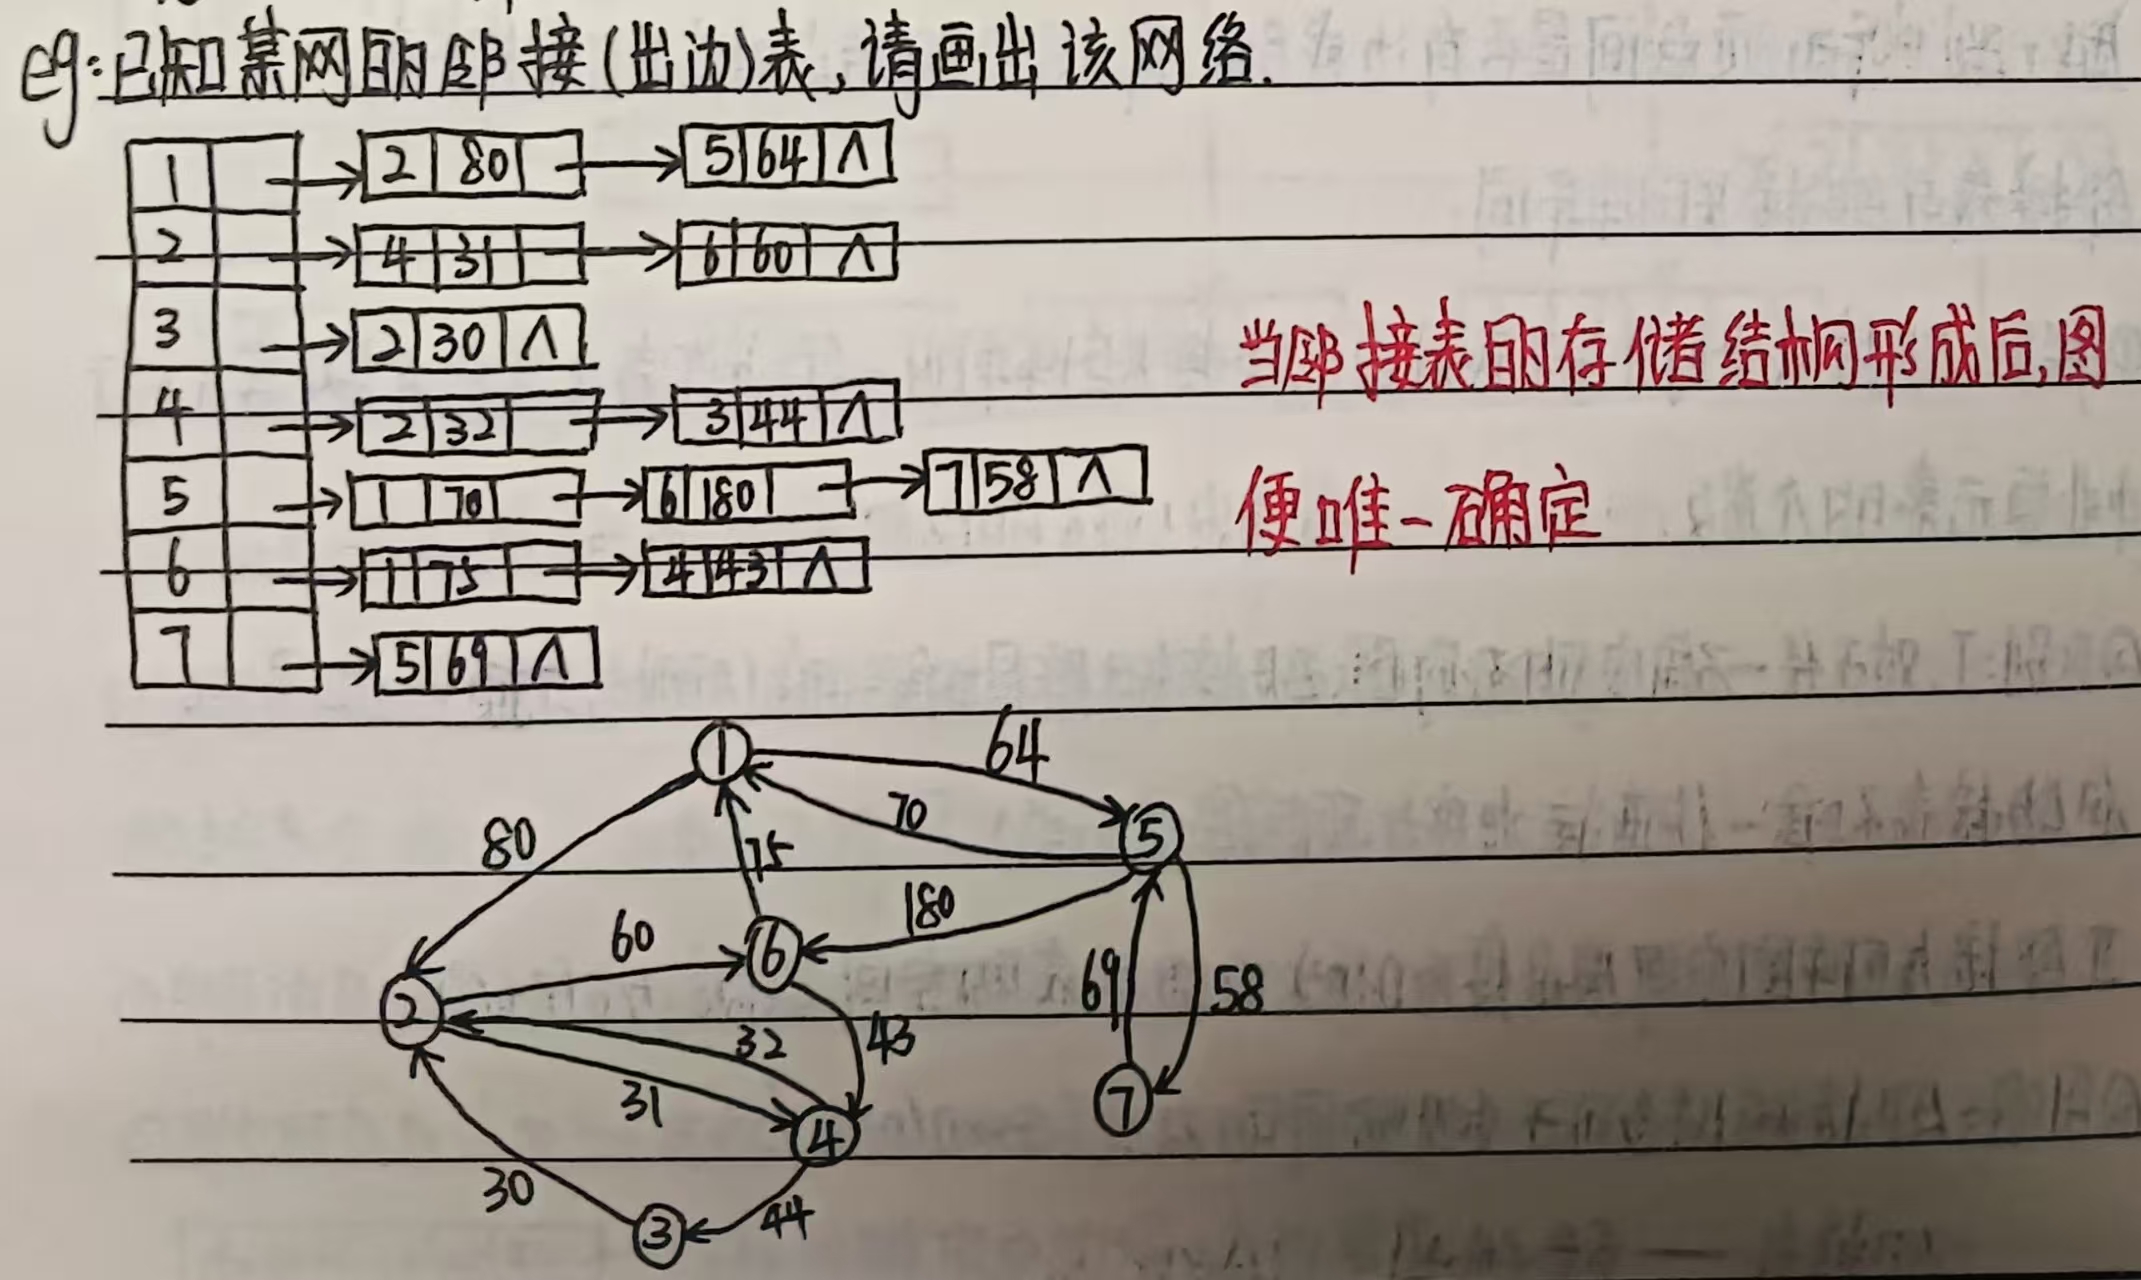 eg:已知某网的邻接(出边)表,请画出该网络.
1 2 80 5 64 ∧
2 4 31 6 60 ∧
3 2 30 ∧
4 2 32 3 44 ∧
5 1 70 6 180 7 58 ∧
6 1 75 4 43 ∧
7 5 69 ∧
当邻接表的存储结构形成后,图
便唯一确定
1 64
70
80 75 5
180
60 6
69 58
2 32 43
31 7
4
30 44
3